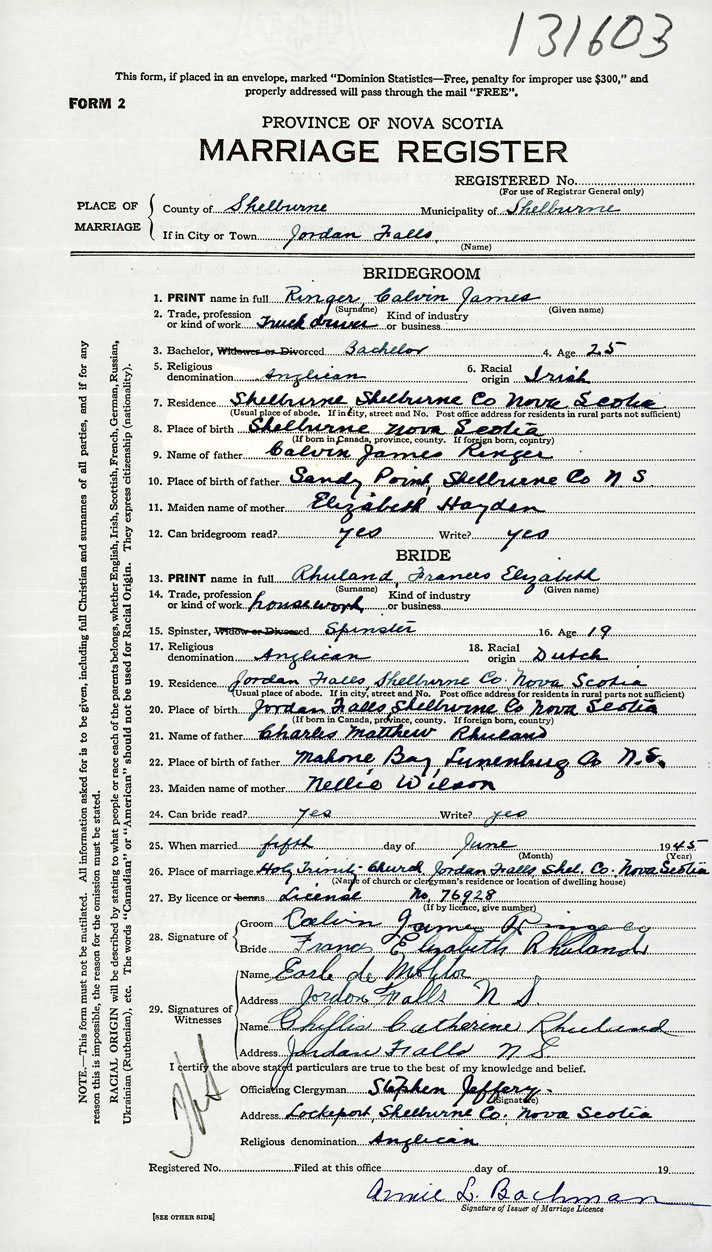 131603
This form, if placed in an envelope, marked "Dominion Statistics—Free, penalty for improper use $300," and
properly addressed will pass through the mail "FREE".
FORM 2
PROVINCE OF NOVA SCOTIA
MARRIAGE REGISTER
REGISTERED No.
(For use of Registrar General only)
PLACE OF MARRIAGE
County of Shelburne Municipality of Shelburne
If in City or Town Jordan Falls
(Name)
BRIDEGROOM
1. PRINT name in full Ringer, Calvin James
(Surname) (Given name)
2. Trade, profession or kind of work Truck driver Kind of industry or business
3. Bachelor, Widower or Divorced Bachelor 4. Age 25
5. Religious denomination Anglican 6. Racial origin Irish
7. Residence Shelburne Shelburne Co Nova Scotia
(Usual place of abode. If in city, street and No. Post office address for residents in rural parts not sufficient)
8. Place of birth Shelburne Nova Scotia
(If born in Canada, province, county. If foreign born, country)
9. Name of father Calvin James Ringer
10. Place of birth of father Sandy Point, Shelburne Co N S
11. Maiden name of mother Elizabeth Hayden
12. Can bridegroom read? yes Write? yes
BRIDE
13. PRINT name in full Rhuland, Frances Elizabeth
(Surname) (Given name)
14. Trade, profession or kind of work housework Kind of industry or business
15. Spinster, Widow or Divorced Spinster 16. Age 19
17. Religious denomination Anglican 18. Racial origin Dutch
19. Residence Jordan Falls, Shelburne Co. Nova Scotia
(Usual place of abode. If in city, street and No. Post office address for residents in rural parts not sufficient)
20. Place of birth Jordan Falls Shelburne Co Nova Scotia
(If born in Canada, province, county. If foreign born, country)
21. Name of father Charles Matthew Rhuland
22. Place of birth of father Mahone Bay, Lunenburg Co N.S.
23. Maiden name of mother Nellie Wilson
24. Can bride read? yes Write? yes
25. When married fifth day of June 1945
(Month) (Year)
26. Place of marriage Holy Trinity Church Jordan Falls Shel. Co. Nova Scotia
(Name of church or clergyman's residence or location of dwelling house)
27. By licence or banns License No. 76928
(If by licence, give number)
28. Signature of
Groom Calvin James Ringer
Bride Francis Elizabeth Rhuland
29. Signatures of Witnesses
Name Earle de
Address Jordon Falls N S.
Name Phyllis Catherine Rhuland
Address Jordan Falls N S.
I certify the above stated particulars are true to the best of my knowledge and belief.
Officiating Clergyman Stephen Jeffery.
(Signature)
Address Lockeport, Shelburne Co. Nova Scotia
Religious denomination Anglican
Registered No. Filed at this office day of 19
Annie L. Bachman
Signature of Issuer of Marriage Licence
[SEE OTHER SIDE]
NOTE.—This form must not be mutilated. All information asked for is to be given, including full Christian and surnames of all parties, and if for any
reason this is impossible, the reason for the omission must be stated.
RACIAL ORIGIN will be described by stating to what people or race each of the parents belongs, whether English, Irish, Scottish, French, German, Russian,
Ukrainian (Ruthenian), etc. The words "Canadian" or "American" should not be used for Racial Origin. They express citizenship (nationality).